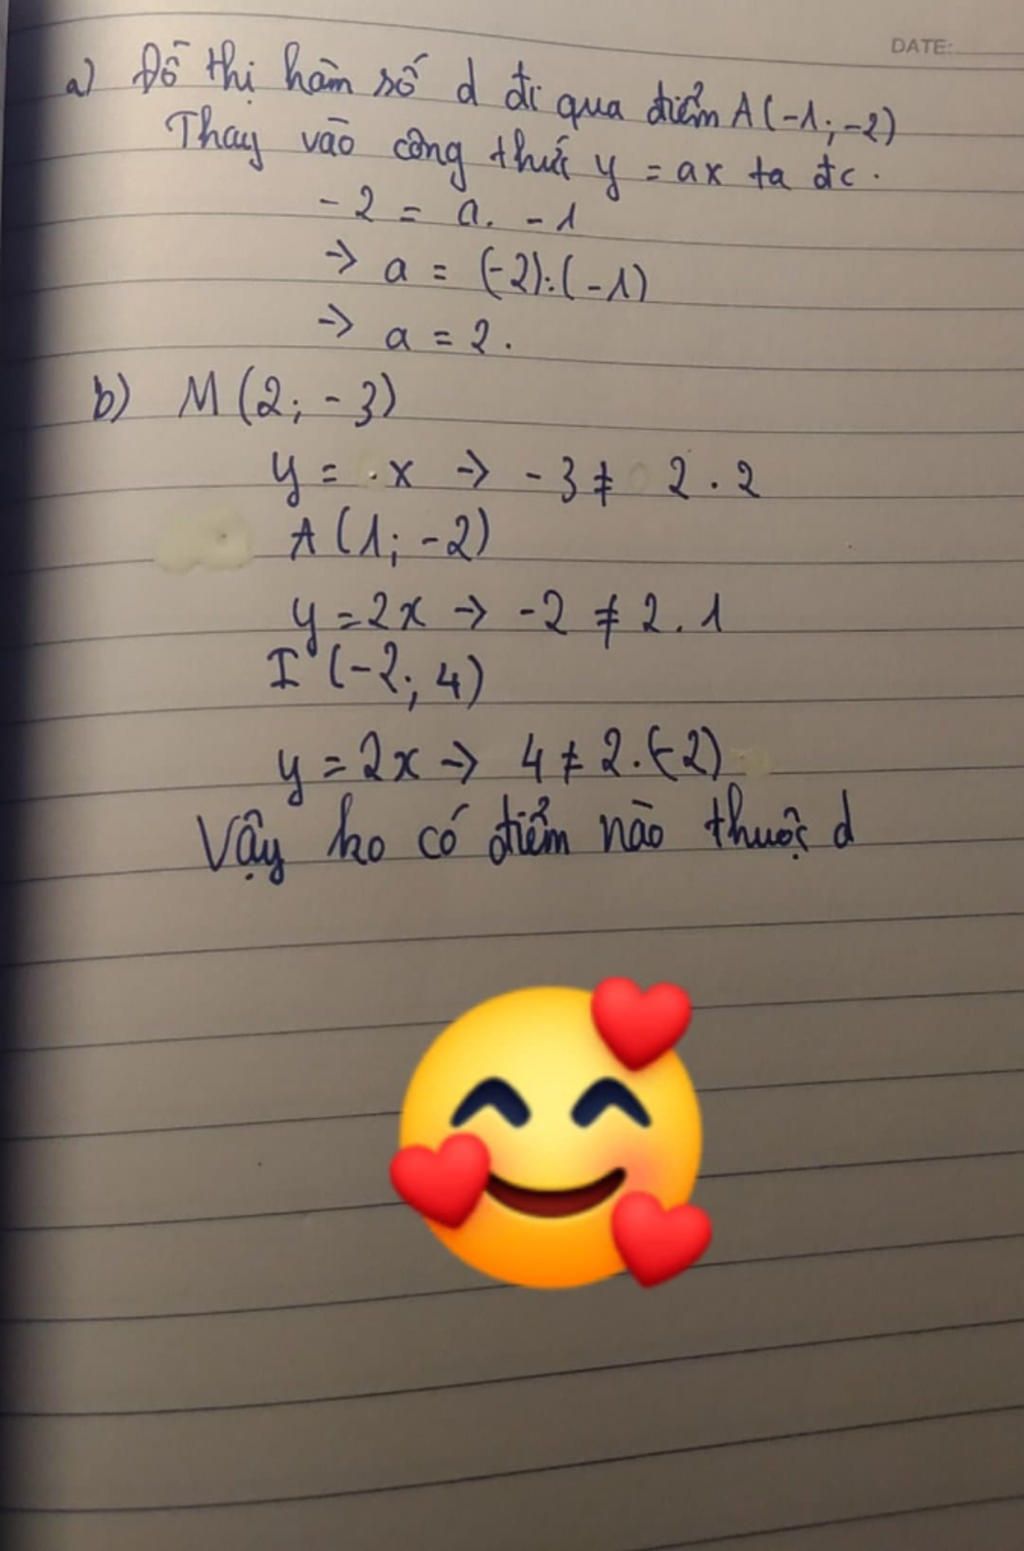 DATE:
a) Đồ thị hàm số d đi qua điểm A(-1;-2)
Thay vào công thức y = ax ta đc.
-2 = a. -1
-> a = (-2):(-1)
-> a = 2.
b) M(2; -3)
y = .x -> -3 ≠ 2 . 2
A (1; -2)
y = 2x -> -2 ≠ 2. 1
I (-2; 4)
y = 2x -> 4 ≠ 2.(-2)
Vậy ko có điểm nào thuộc d